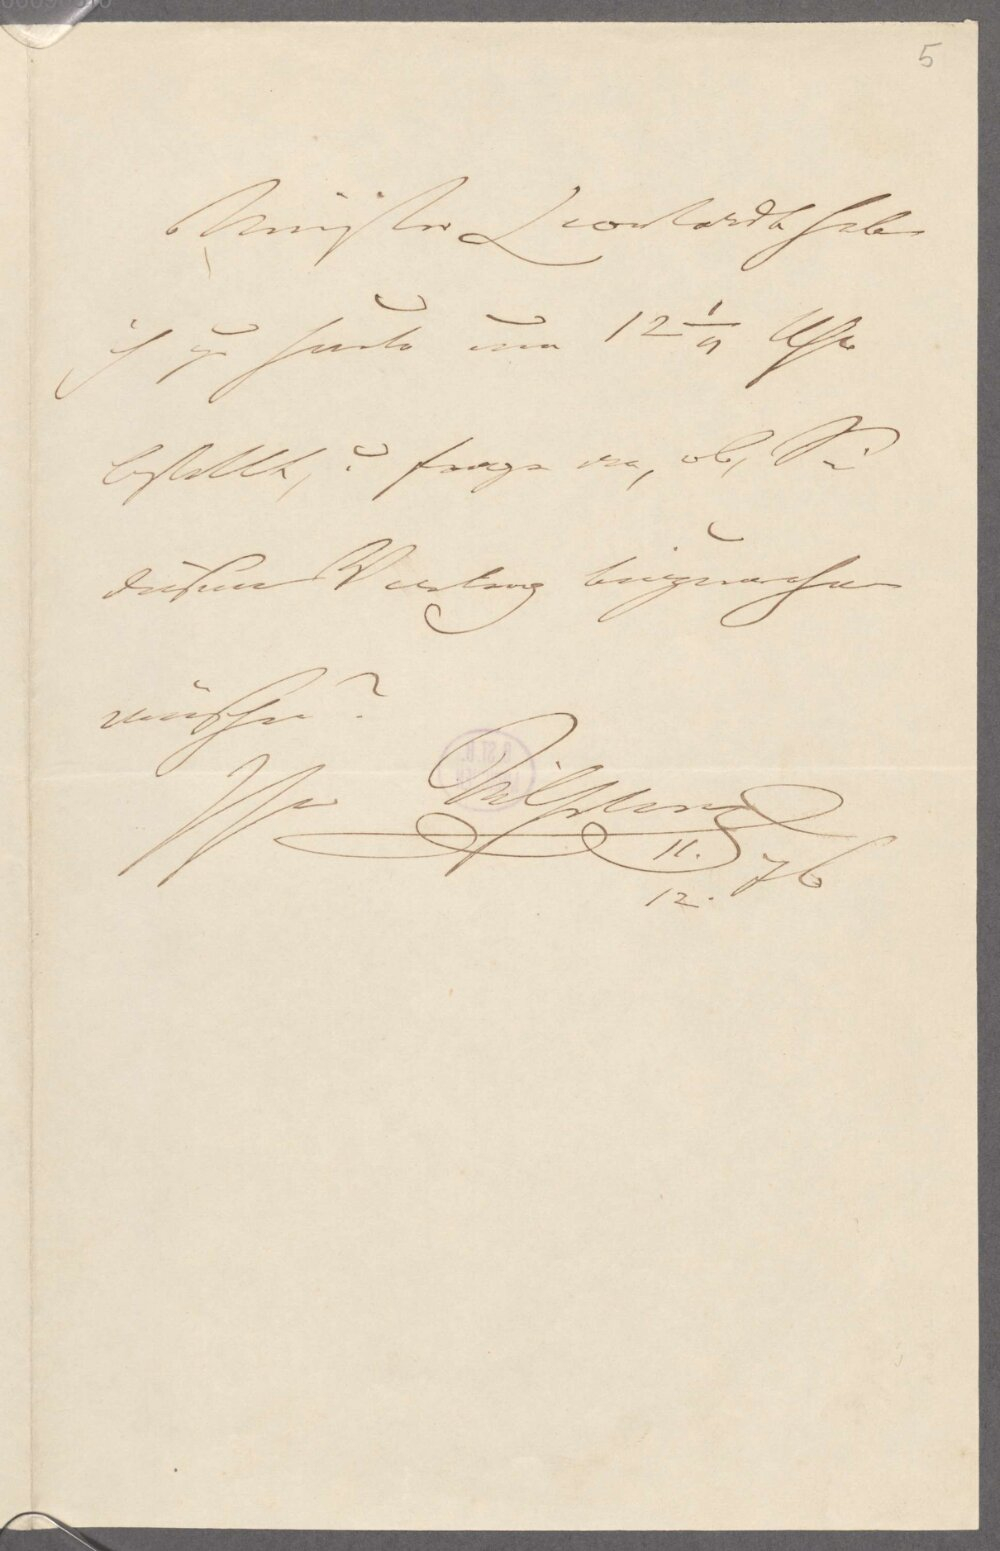 5
Minister Leonhardt habe
ich zu heute um 12 1/2 Uhr
bestellt, u frage an, ob Sie
diesem Vortrag beizuwohnen
wünschen?
Ihr Wilhelm
11.
12. 76